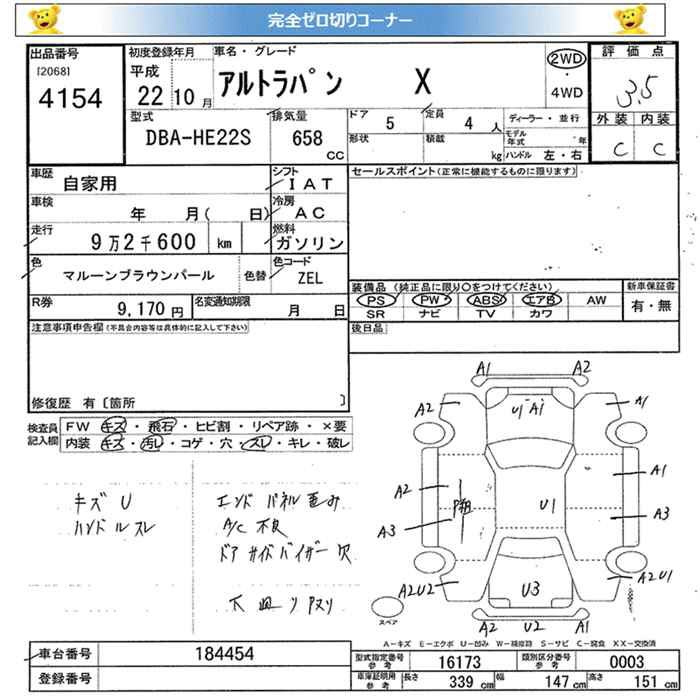 完全ゼロ切りコーナー
出品番号 [2068] 4154
初度登録年月 平成 22 10 月
車名・グレード アルトラパン X
2WD ・ 4WD
評価点 3.5
外装 内装
C C
型式 DBA-HE22S
排気量 658 CC
ドア 5 定員 4 人
形状 積載 kg
ディーラー・並行
モデル年式 年
ハンドル 左・右
車歴 自家用
シフト IAT
車検 年 月( 日)
冷房 AC
走行 9万2千600 km
燃料 ガソリン
色 マルーンブラウンパール 色替
色コード ZEL
R券 9,170 円
名変通知期限 月 日
セールスポイント(正常に機能するものに限ります)
装備品(純正品に限り○をつけてください)
PS PW ABS エアB AW
SR ナビ TV カワ
新車保証書 有・無
後日品
注意事項申告欄(不具合内容等は具体的に記入して下さい)
修復歴 有〔箇所 〕
検査員記入欄
FW キズ・飛石・ヒビ割・リペア跡・×要
内装 キズ・汚レ・コゲ・穴・スレ・キレ・破レ
キズ U
ハンドルスレ
エンドパネル歪み
A/C 不良
ドアサイドバイザー欠
A1 A2
A2 U1 A1 A1
A2 A1
U1
A3 A3
A2U2 A2U1
U3
A2 U2 A1
スペア
A-キズ E-エクボ U-凹み W-補修跡 S-サビ C-腐食 XX-交換済
車台番号 184454
登録番号
型式指定番号 参考 16173
類別区分番号 参考 0003
車庫証明用 参考 長さ 339 cm 幅 147 cm 高さ 151 cm